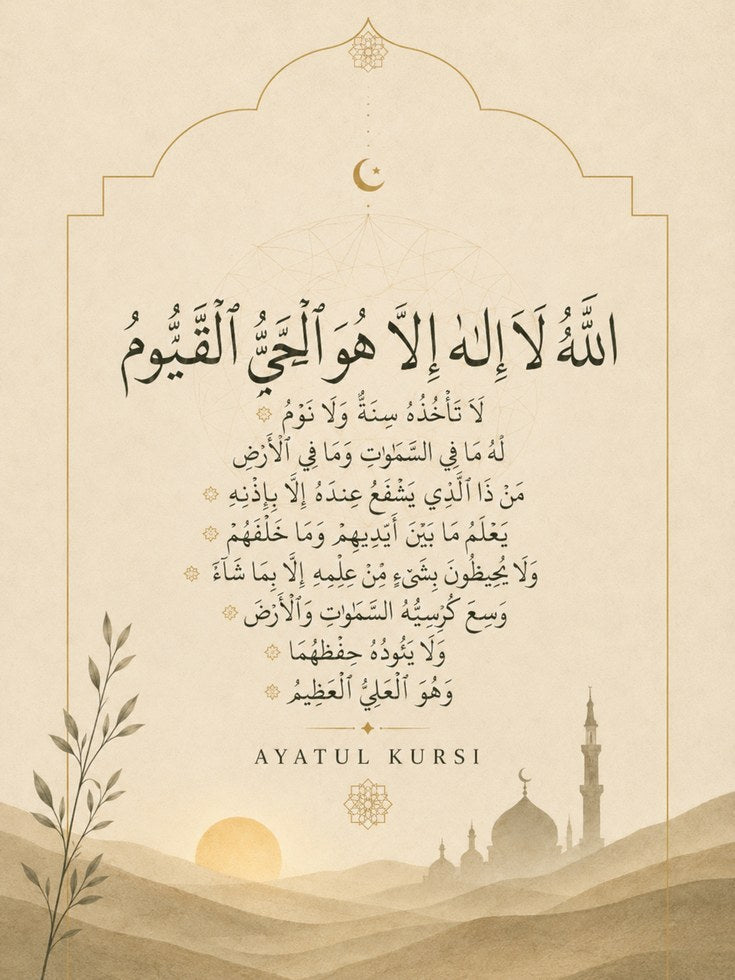 اللَّهُ لَا إِلَٰهَ إِلَّا هُوَ ٱلْحَيُّ ٱلْقَيُّومُ
لَا تَأْخُذُهُ سِنَةٌ وَلَا نَوْمُ
لَهُ مَا فِي السَّمَٰوَٰتِ وَمَا فِي ٱلْأَرْضِ
مَنْ ذَا ٱلَّذِي يَشْفَعُ عِندَهُ إِلَّا بِإِذْنِهِ
يَعْلَمُ مَا بَيْنَ أَيْدِيهِمْ وَمَا خَلْفَهُمْ
وَلَا يُحِيطُونَ بِشَىْءٍ مِّنْ عِلْمِهِ إِلَّا بِمَا شَآءَ
وَسِعَ كُرْسِيُّهُ السَّمَٰوَٰتِ وَٱلْأَرْضَ
وَلَا يَئُودُهُ حِفْظُهُمَا
وَهُوَ ٱلْعَلِيُّ ٱلْعَظِيمُ
AYATUL KURSI